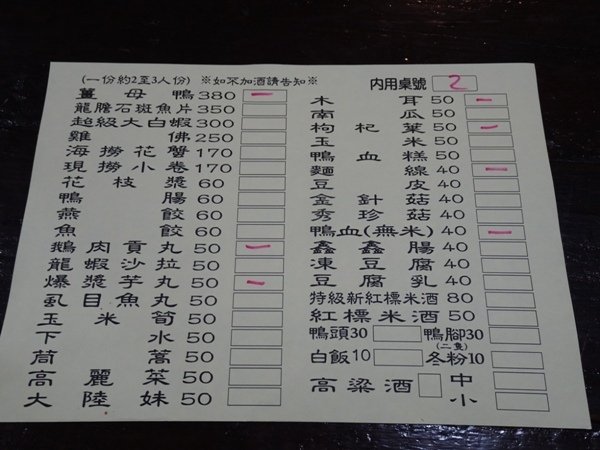 (一份約2至3人份) ※如不加酒請告知※
內用桌號 2
薑母鴨380 一
龍膽石斑魚片350
超級大白蝦300
雞佛250
海撈花蟹170
現撈小卷170
花枝漿60
鴨腸60
燕餃60
魚餃60
鵝肉貢丸50 一
龍蝦沙拉50
爆漿芋丸50 一
虱目魚丸50
玉米筍50
下水50
茼蒿50
高麗菜50
大陸妹50
木耳50 一
南瓜50
枸杞葉50 一
玉米50
鴨血糕50
麵線40 一
豆皮40
金針菇40
秀珍菇40
鴨血(無米)40 一
鑫鑫腸40
凍豆腐40
豆腐乳40
特級新紅標米酒80
紅標米酒50
鴨頭30 鴨腳30
(二隻)
白飯10 冬粉10
高粱酒 中
小